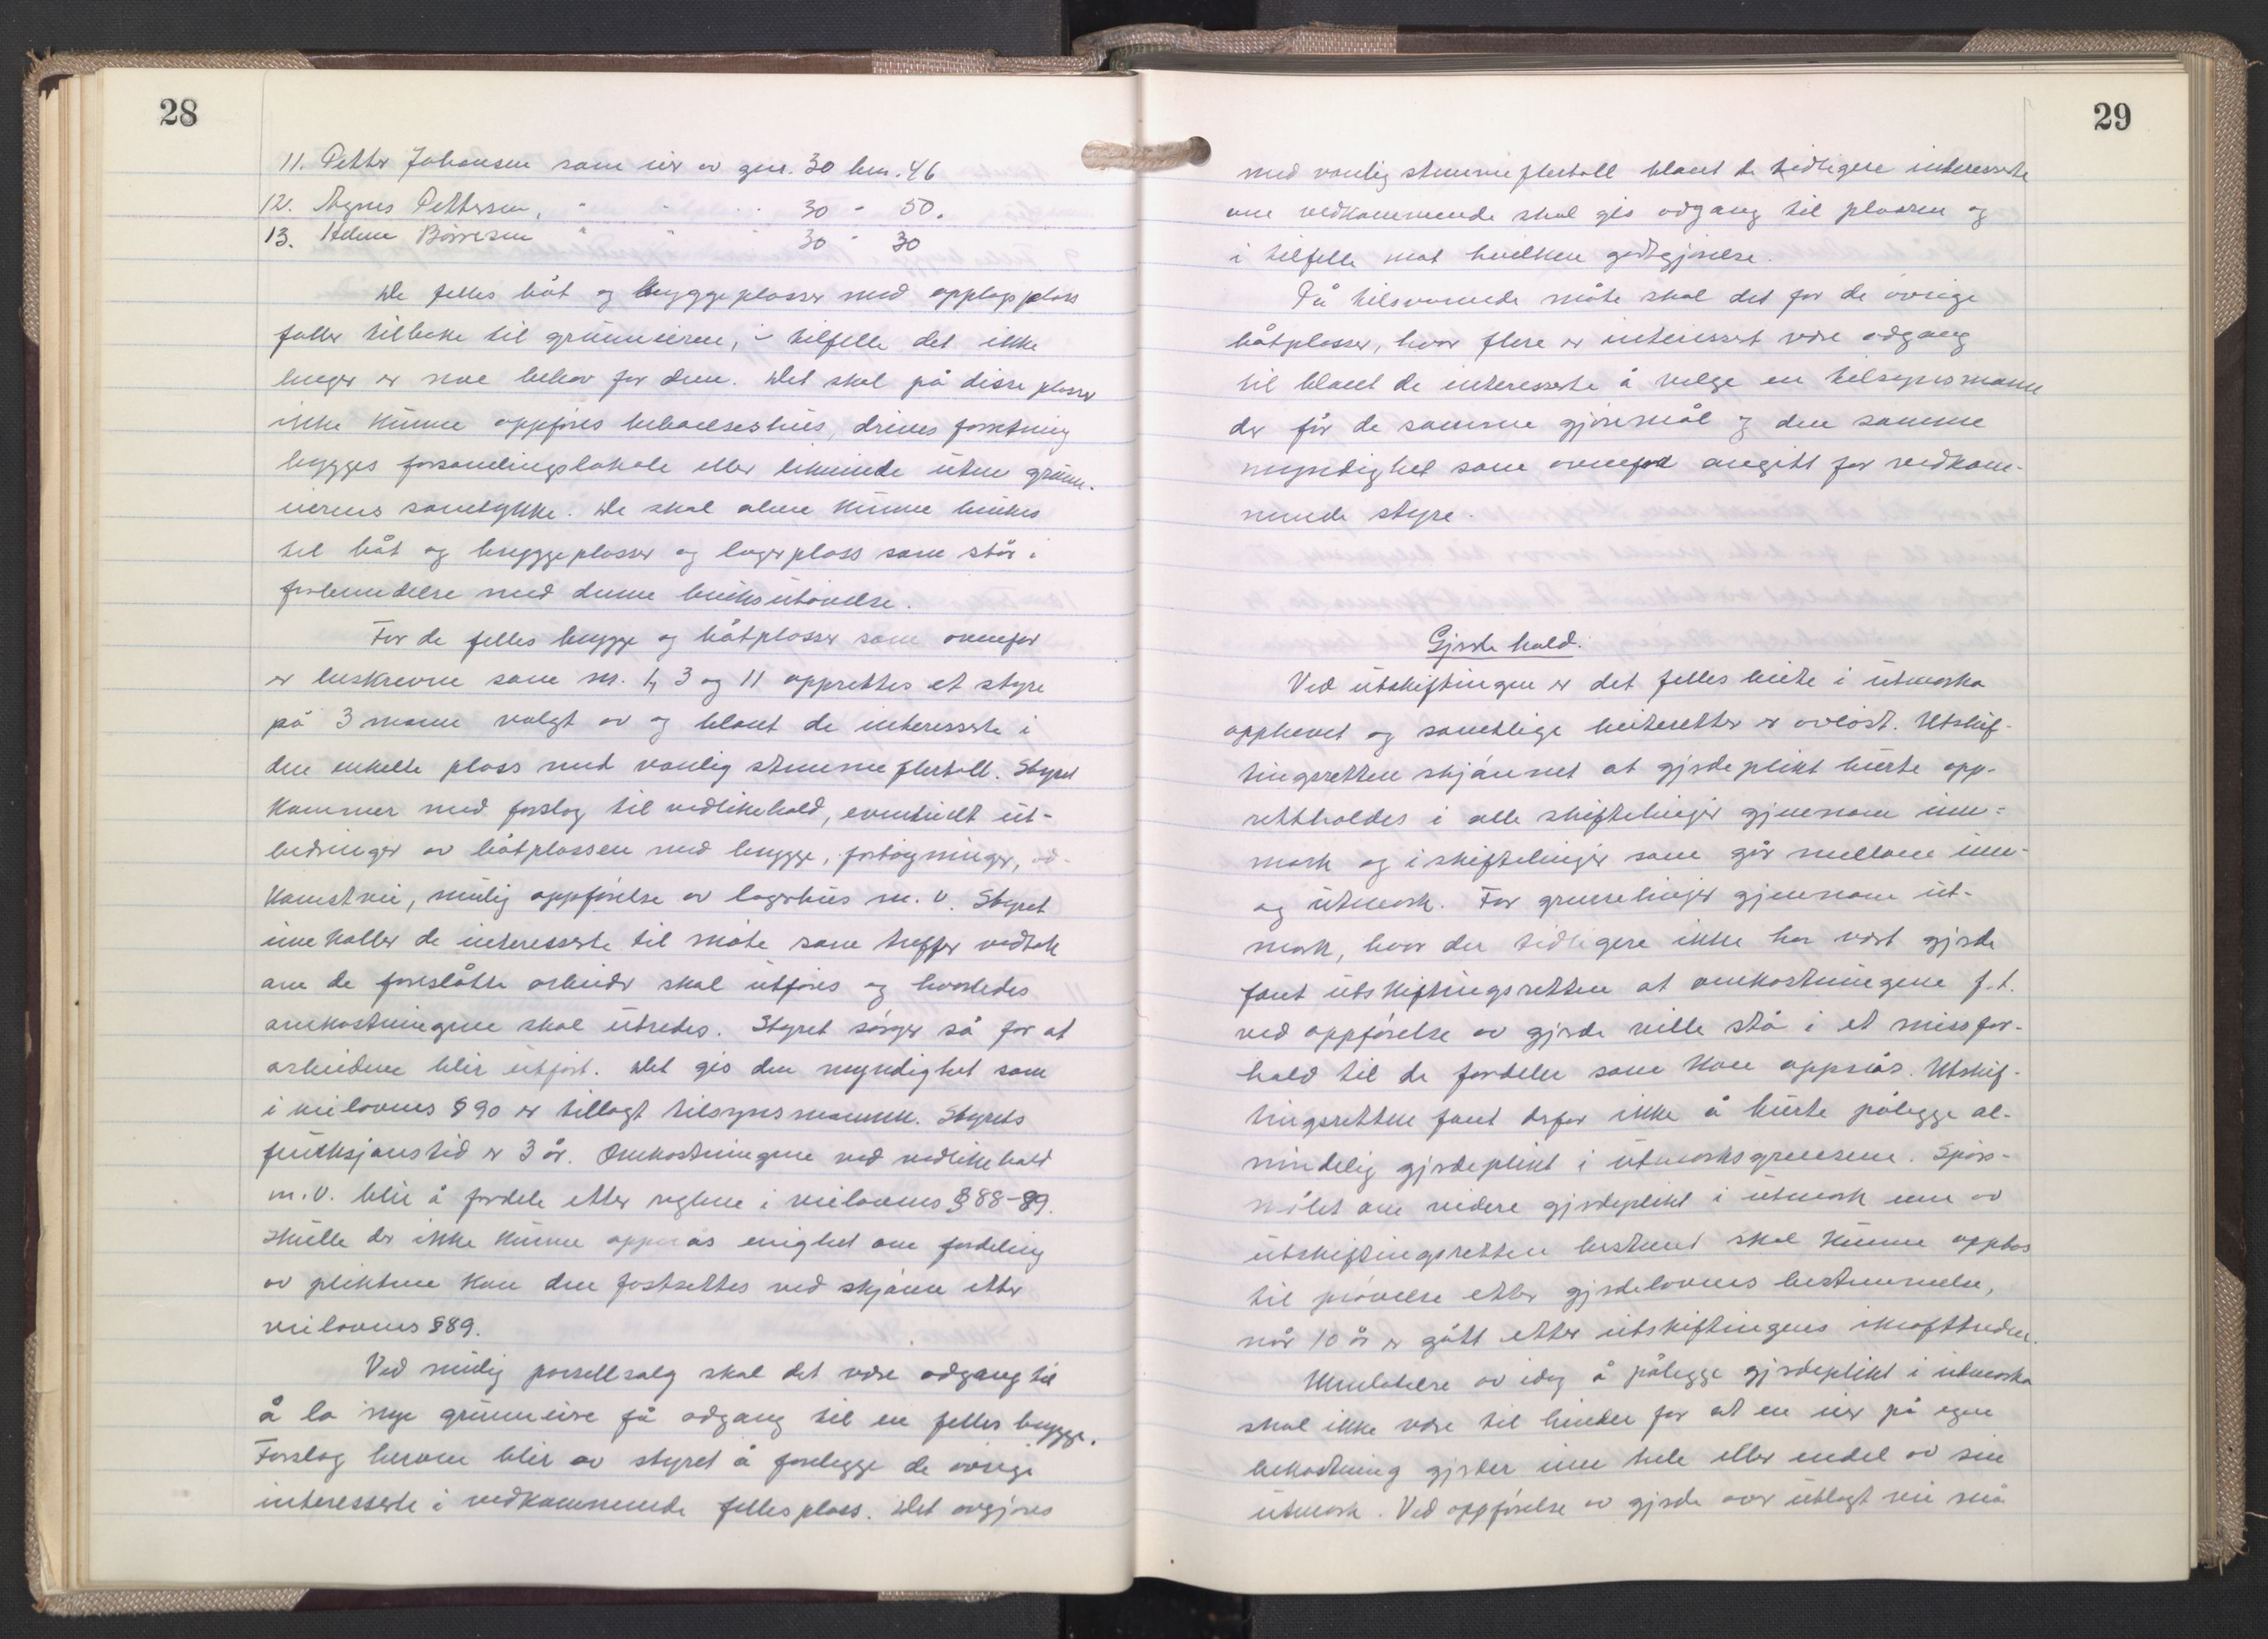 28
11. Petter Johansen som eier av gnr. 30 bnr. 46
12. Agnes Pettersen, " " " 30 " 50.
13. Helene Børresen " " " 30 " 30
De felles båt og bryggeplasser med opplagsplass
faller tilbake til grunneieren, i tilfelle det ikke
lenger er noe behov for dem. Det skal på disse plasser
ikke kunne oppføres beboelseshus, drives forretning
bygges forsamlingslokale eller liknende uten grunn-
eierens samtykke. De skal alene kunne brukes
til båt og bryggeplasser og lagerplass som står i
forbindelse med denne bruksutøvelse.
For de felles brygge og båtplasser som ovenfor
er beskrevne som nr. 1, 3 og 11 opprettes et styre
på 3 mann valgt av og blant de interesserte i
den enkelte plass med vanlig stemmeflertall. Styret
kommer med forslag til vedlikehold, eventuelt ut-
bedringer av båtplassen med brygge, fortøyninger, ad-
komstvei, mulig oppførelse av lagerhus m.v. Styret
innkaller de interesserte til møte som treffer vedtak
om de foreslåtte arbeider skal utføres og hvorledes
omkostningene skal utredes. Styret sørger så for at
arbeidene blir utført. Det gis den myndighet som
i veilovens § 90 er tillagt tilsynsmannen. Styrets
funksjonstid er 3 år. Omkostningene ved vedlikehold
m.v. blir å fordele etter reglene i veilovens § 88-89.
Skulle der ikke kunne oppnås enighet om fordeling
av pliktene kan den fastsettes ved skjønn etter
veilovens § 89.
Ved mulig parsellsalg skal det være adgang til
å la nye grunneiere få adgang til en felles brygge.
Forslag herom blir av styret å forelegge de øvrige
interesserte i vedkommende fellesplass. Det avgjøres
29
med vanlig stemmeflertall blant de tidligere interesserte
om vedkommende skal gis adgang til plassen og
i tilfelle mot hvilken godtgjørelse.
På tilsvarende måte skal det for de øvrige
båtplasser, hvor flere er interessert være adgang
til blant de interesserte å velge en tilsynsmann
der får de samme gjøremål og den samme
myndighet som ovenfor angitt for vedkom-
mende styre.
Gjerdehold.
Ved utskiftingen er det felles beite i utmarka
opphevet og samtlige beiteretter er avløst. Utskif-
tingsretten skjønnet at gjerdeplikt burte opp-
rettholdes i alle skiftelinjer gjennom inn-
mark og i skiftelinjer som går mellom inn-
og utmark. For grenselinjer gjennom ut-
mark, hvor der tidligere ikke har vært gjerde
fant utskiftingsretten at omkostningene f.t.
ved oppførelse av gjerde ville stå i et missfor-
hold til de fordeler som kan oppnås. Utskif-
tingsretten fant derfor ikke å burte pålegge al-
mindelig gjerdeplikt i utmarksgrensene. Spørs-
målet om videre gjerdeplikt i utmark enn av
utskiftingsretten bestemt skal kunne opptas
til prøvelse etter gjerdelovens bestemmelse,
når 10 år er gått etter utskiftingens ikrafttreden.
Unnlatelse av idag å pålegge gjerdeplikt i utmarka
skal ikke være til hinder for at en eier på egen
bekostning gjerder inn hele eller endel av sin
utmark. Ved oppførelse av gjerde over utlagt vei må